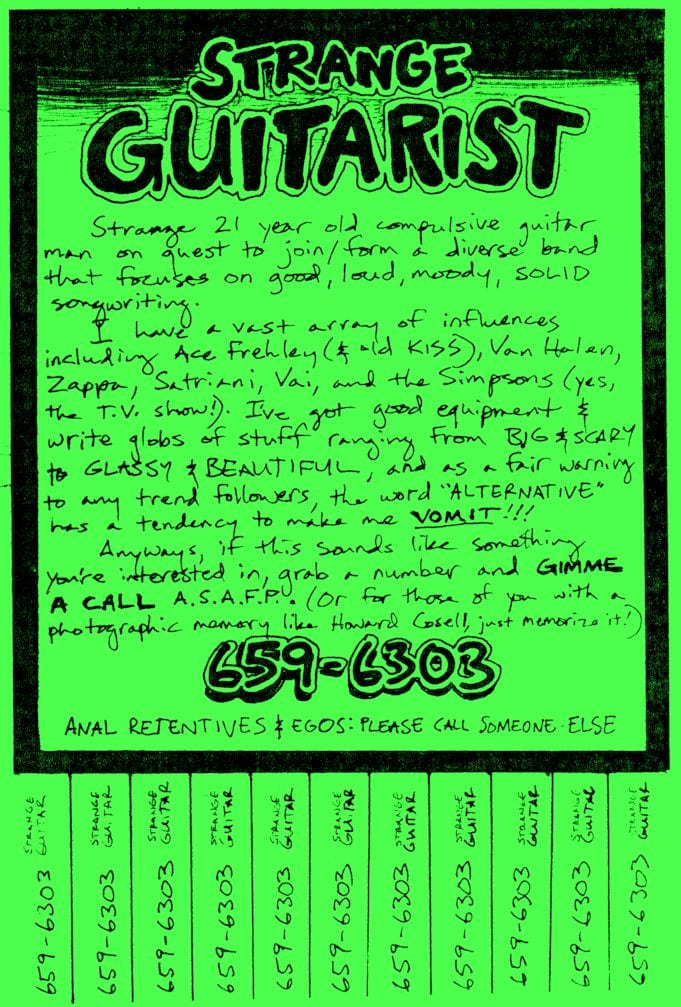 STRANGE
GUITARIST
Strange 21 year old compulsive guitar
man on quest to join/form a diverse band
that focuses on good, loud, moody, SOLID
songwriting.
I have a vast array of influences
including Ace Frehley (& old KISS), Van Halen,
Zappa, Satriani, Vai, and the Simpsons (yes,
the T.V. show!). I've got good equipment &
write globs of stuff ranging from BIG & SCARY
to GLASSY & BEAUTIFUL, and as a fair warning
to any trend followers, the word "ALTERNATIVE"
has a tendency to make me VOMIT!!!
Anyways, if this sounds like something
you're interested in, grab a number and GIMME
A CALL A.S.A.F.P.. (Or for those of you with a
photographic memory like Howard Cosell, just memorize it!)
659-6303
ANAL RETENTIVES & EGOS: PLEASE CALL SOMEONE ELSE
STRANGE
GUITAR
659-6303
STRANGE
GUITAR
659-6303
STRANGE
GUITAR
659-6303
STRANGE
GUITAR
659-6303
STRANGE
GUITAR
659-6303
STRANGE
GUITAR
659-6303
STRANGE
GUITAR
659-6303
STRANGE
GUITAR
659-6303
STRANGE
GUITAR
659-6303
STRANGE
GUITAR
659-6303
STRANGE
GUITAR
659-6303